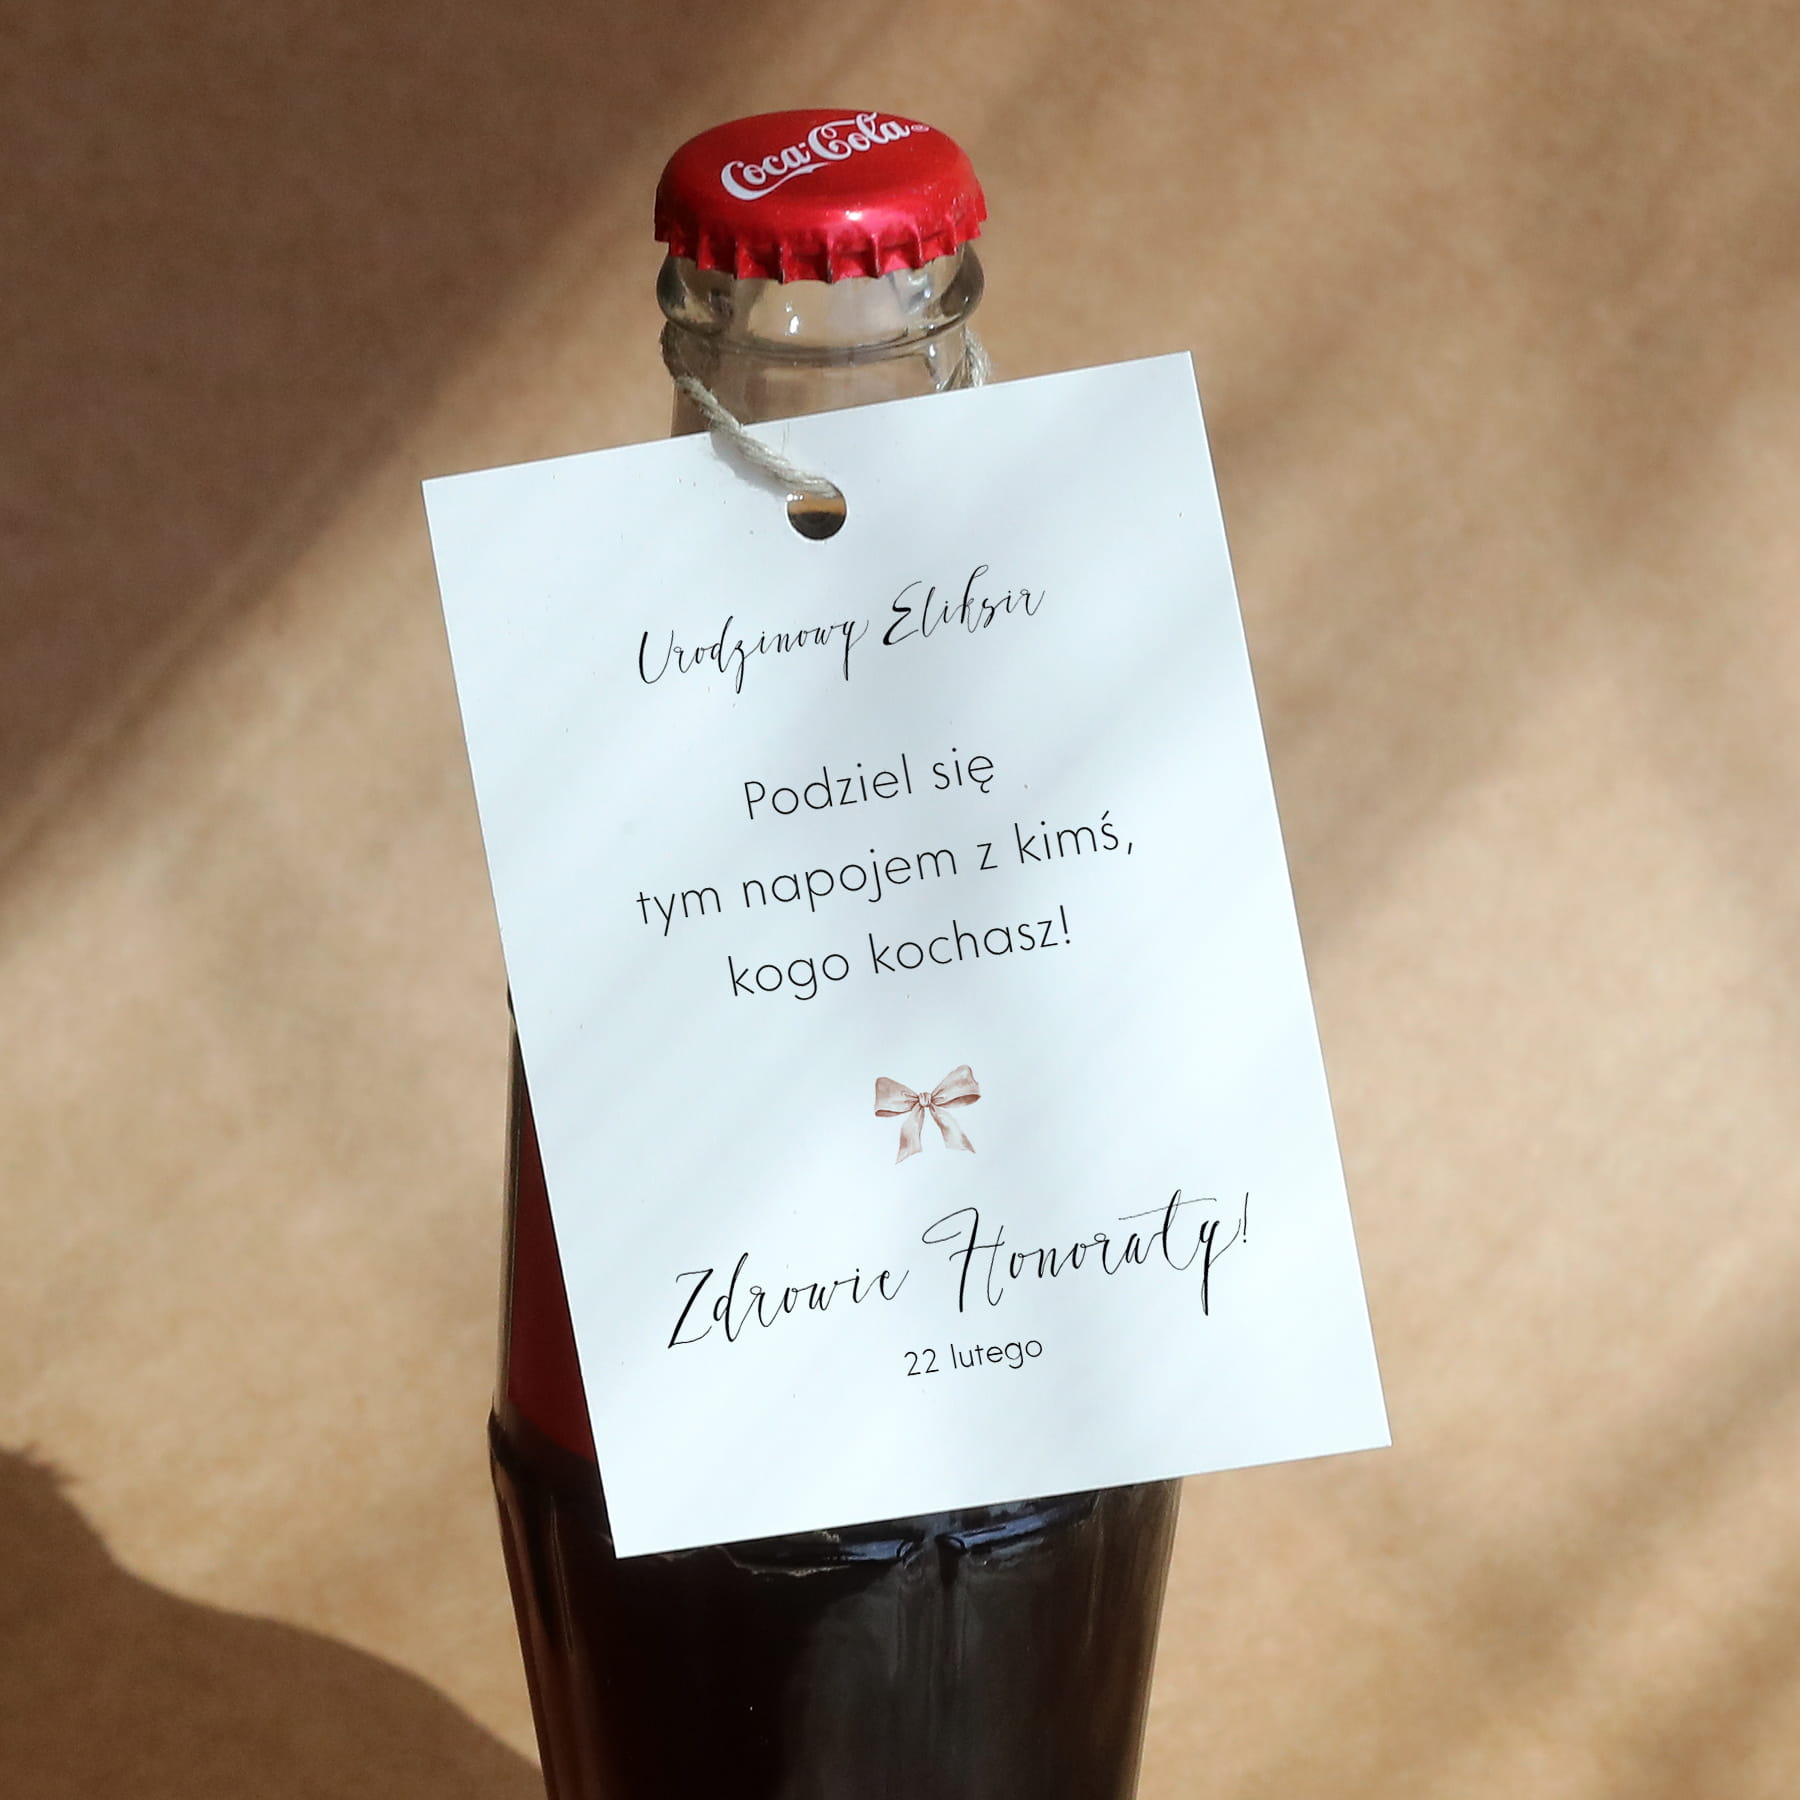 Coca-Cola
Urodzinowy Eliksir
Podziel się
tym napojem z kimś,
kogo kochasz!
Zdrowie Honoraty!
22 lutego